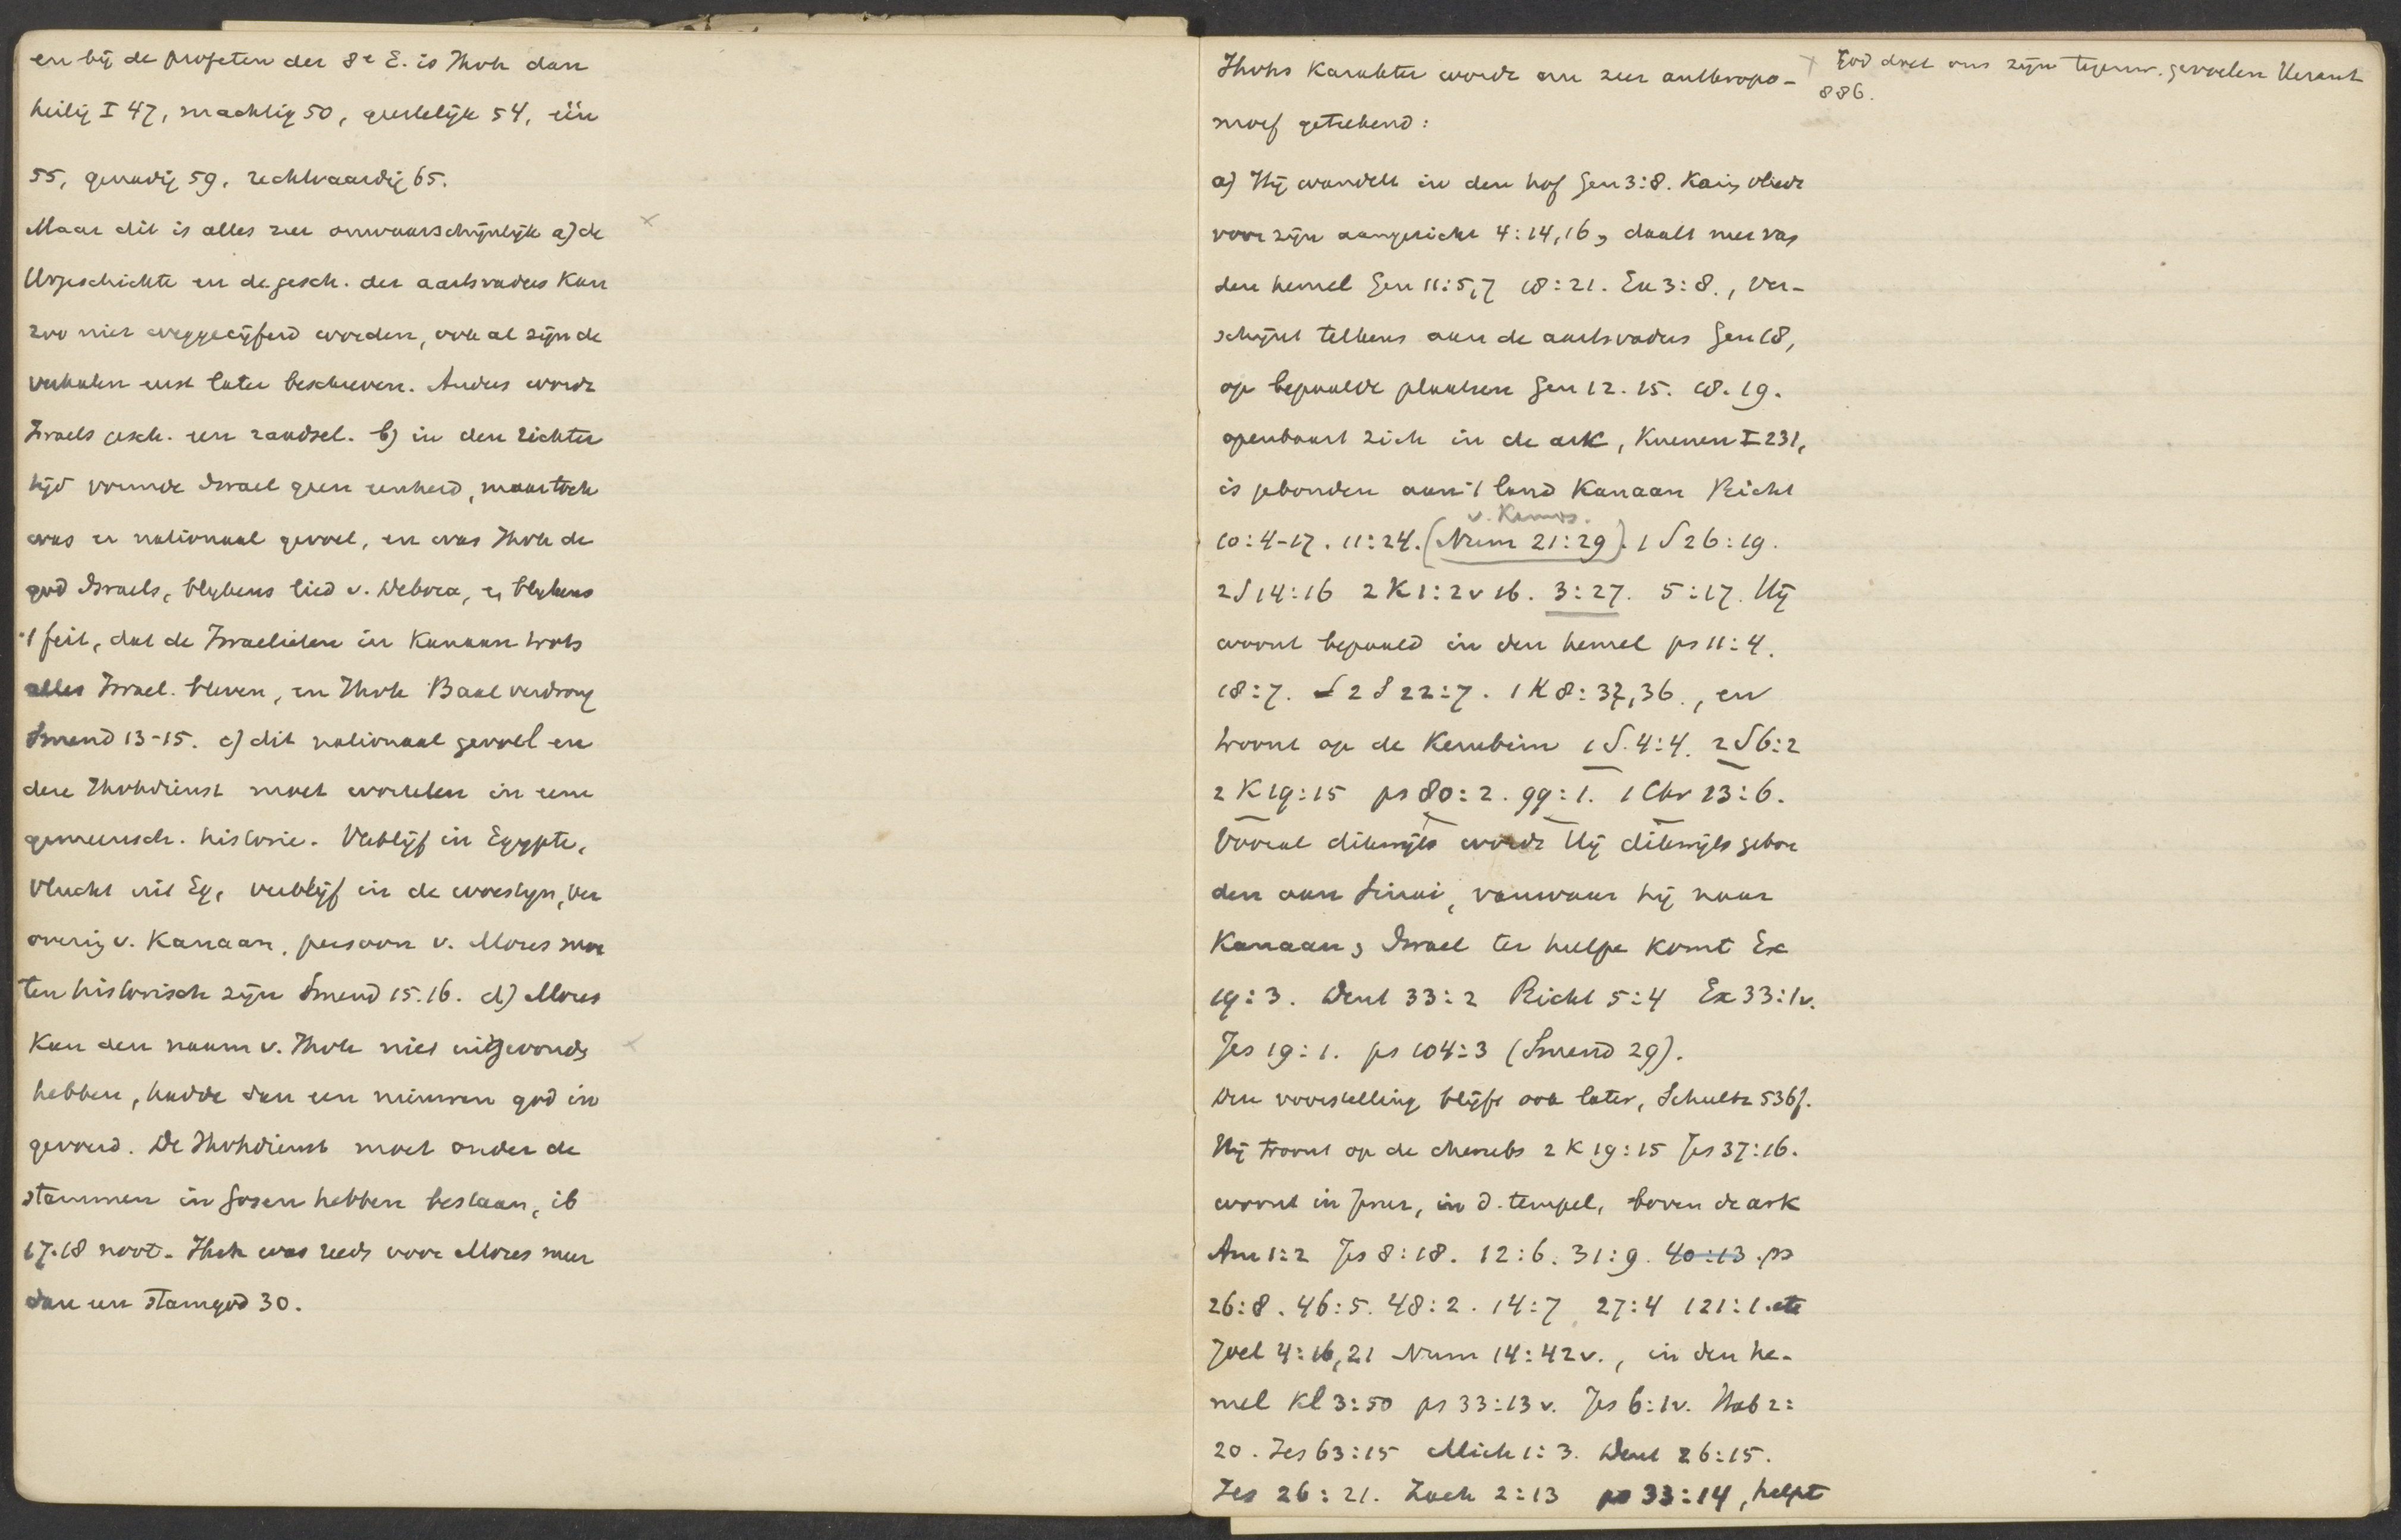 en bij de profeten der 8e E. is Jhvh dan
heilig I 47, machtig 50, geestelijk 54, één
55, genadig 59, rechtvaardig 65.
Maar dit is alles zeer onwaarschijnlijk a) de
Urgeschichte en de gesch. der aartsvaders kan
zoo niet weggecijferd worden, ook al zijn de
verhalen eerst later beschreven. Anders wordt
Israels gesch. een raadsel. b) in den richter
tijd vormde Israel geen eenheid, maar toch
was er nationaal gevoel, en was Jhvh de
god Israels, blijkens lied v. Debora, en blijkens
't feit, dat de Israelieten in Kanaan trots
alles Israel. bleven, en Jhvh Baal verdrong
Smend 13-15. c) dit nationaal gevoel en
deze Jhvhdienst moet wortelen in eene
gemeensch. historie. Verblijf in Egypte,
vlucht uit Eg, verblijf in de woestijn, ver
overing v. Kanaan, persoon v. Mozes moe
ten historisch zijn Smend 15.16. d) Mozes
kan den naam v. Jhvh niet uitgevonden
hebben, hadde dan een nieuwen god in
gevoerd. De Jhvhdienst moet onder de
stammen in Gosen hebben bestaan, ib
17.18 noot. Jhvh was reeds voor Mozes meer
dan een stamgod 30.
Jhvhs karakter wordt nu zeer anthropo-
morf getekend:
a) Hij wandelt in den hof Gen 3:8. Kain vliedt
voor zijn aangezicht 4:14,16, daalt neer van
den hemel Gen 11:5,7 18:21. Ex 3:8., ver-
schijnt telkens aan de aartsvaders Gen 18,
op bepaalde plaatsen Gen 12. 15. 18. 19.
openbaart zich in de ark, Kuenen I 231,
is gebonden aan 't land Kanaan Richt
v. Kamos.
10:4-17. 11:24. (Num 21:29). 1 S 26:19.
2 S 14:16 2 K 1:2v 16. 3:27. 5:17. Hij
woont bepaald in den hemel ps 11:4.
18:7. 2 S 22:7. 1 K 8:32,36., en
troont op de Kerubim 1 S. 4:4. 2 S 6:2
2 K 19:15 ps 80:2. 99:1. 1 Chr 13:6.
Vooral dikwijls wordt Hij dikwijls gebon
den aan Sinai, vanwaar hij naar
Kanaan, Israel ter hulpe komt Ex
19:3. Deut 33:2 Richt 5:4 Ex 33:1v.
Jes 19:1. ps 104:3 (Smend 29).
Deze voorstelling blijft ook later, Schultz 536f.
Hij troont op de cherubs 2 K 19:15 Jes 37:16.
woont in Jeruz, in d. tempel, boven de ark
Am 1:2 Jes 8:18. 12:6. 31:9. 40:13. ps
26:8. 46:5. 48:2. 14:7 27:4 121:1. etc
Joel 4:16,21 Num 14:42v., in den he-
mel Kl 3:50 ps 33:13v. Jes 6:1v. Hab 2:
20. Jes 63:15 Mich 1:3. Deut 26:15.
Jes 26:21. Zach 2:13 ps 33:14, helpt
God doet ons zijn tegenw. gevoelen
886.